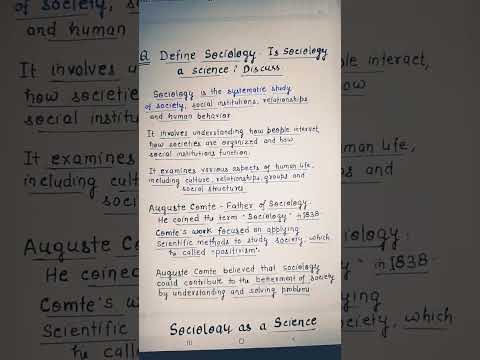 Q Define Sociology. Is Sociology
a science? Discuss
Sociology is the systematic study
of society, social institutions, relationships
and human behavior
It involves understanding how people interact,
how societies are organized and how
social institutions function.
It examines various aspects of human life,
including culture, relationships, groups and
social structures
Auguste Comte - Father of Sociology.
He coined the term "Sociology" in 1838.
Comte's work focused on applying
Scientific methods to study society, which
he called "positivism".
Auguste Comte believed that sociology
could contribute to the betterment of society
by understanding and solving problems
Sociology as a Science